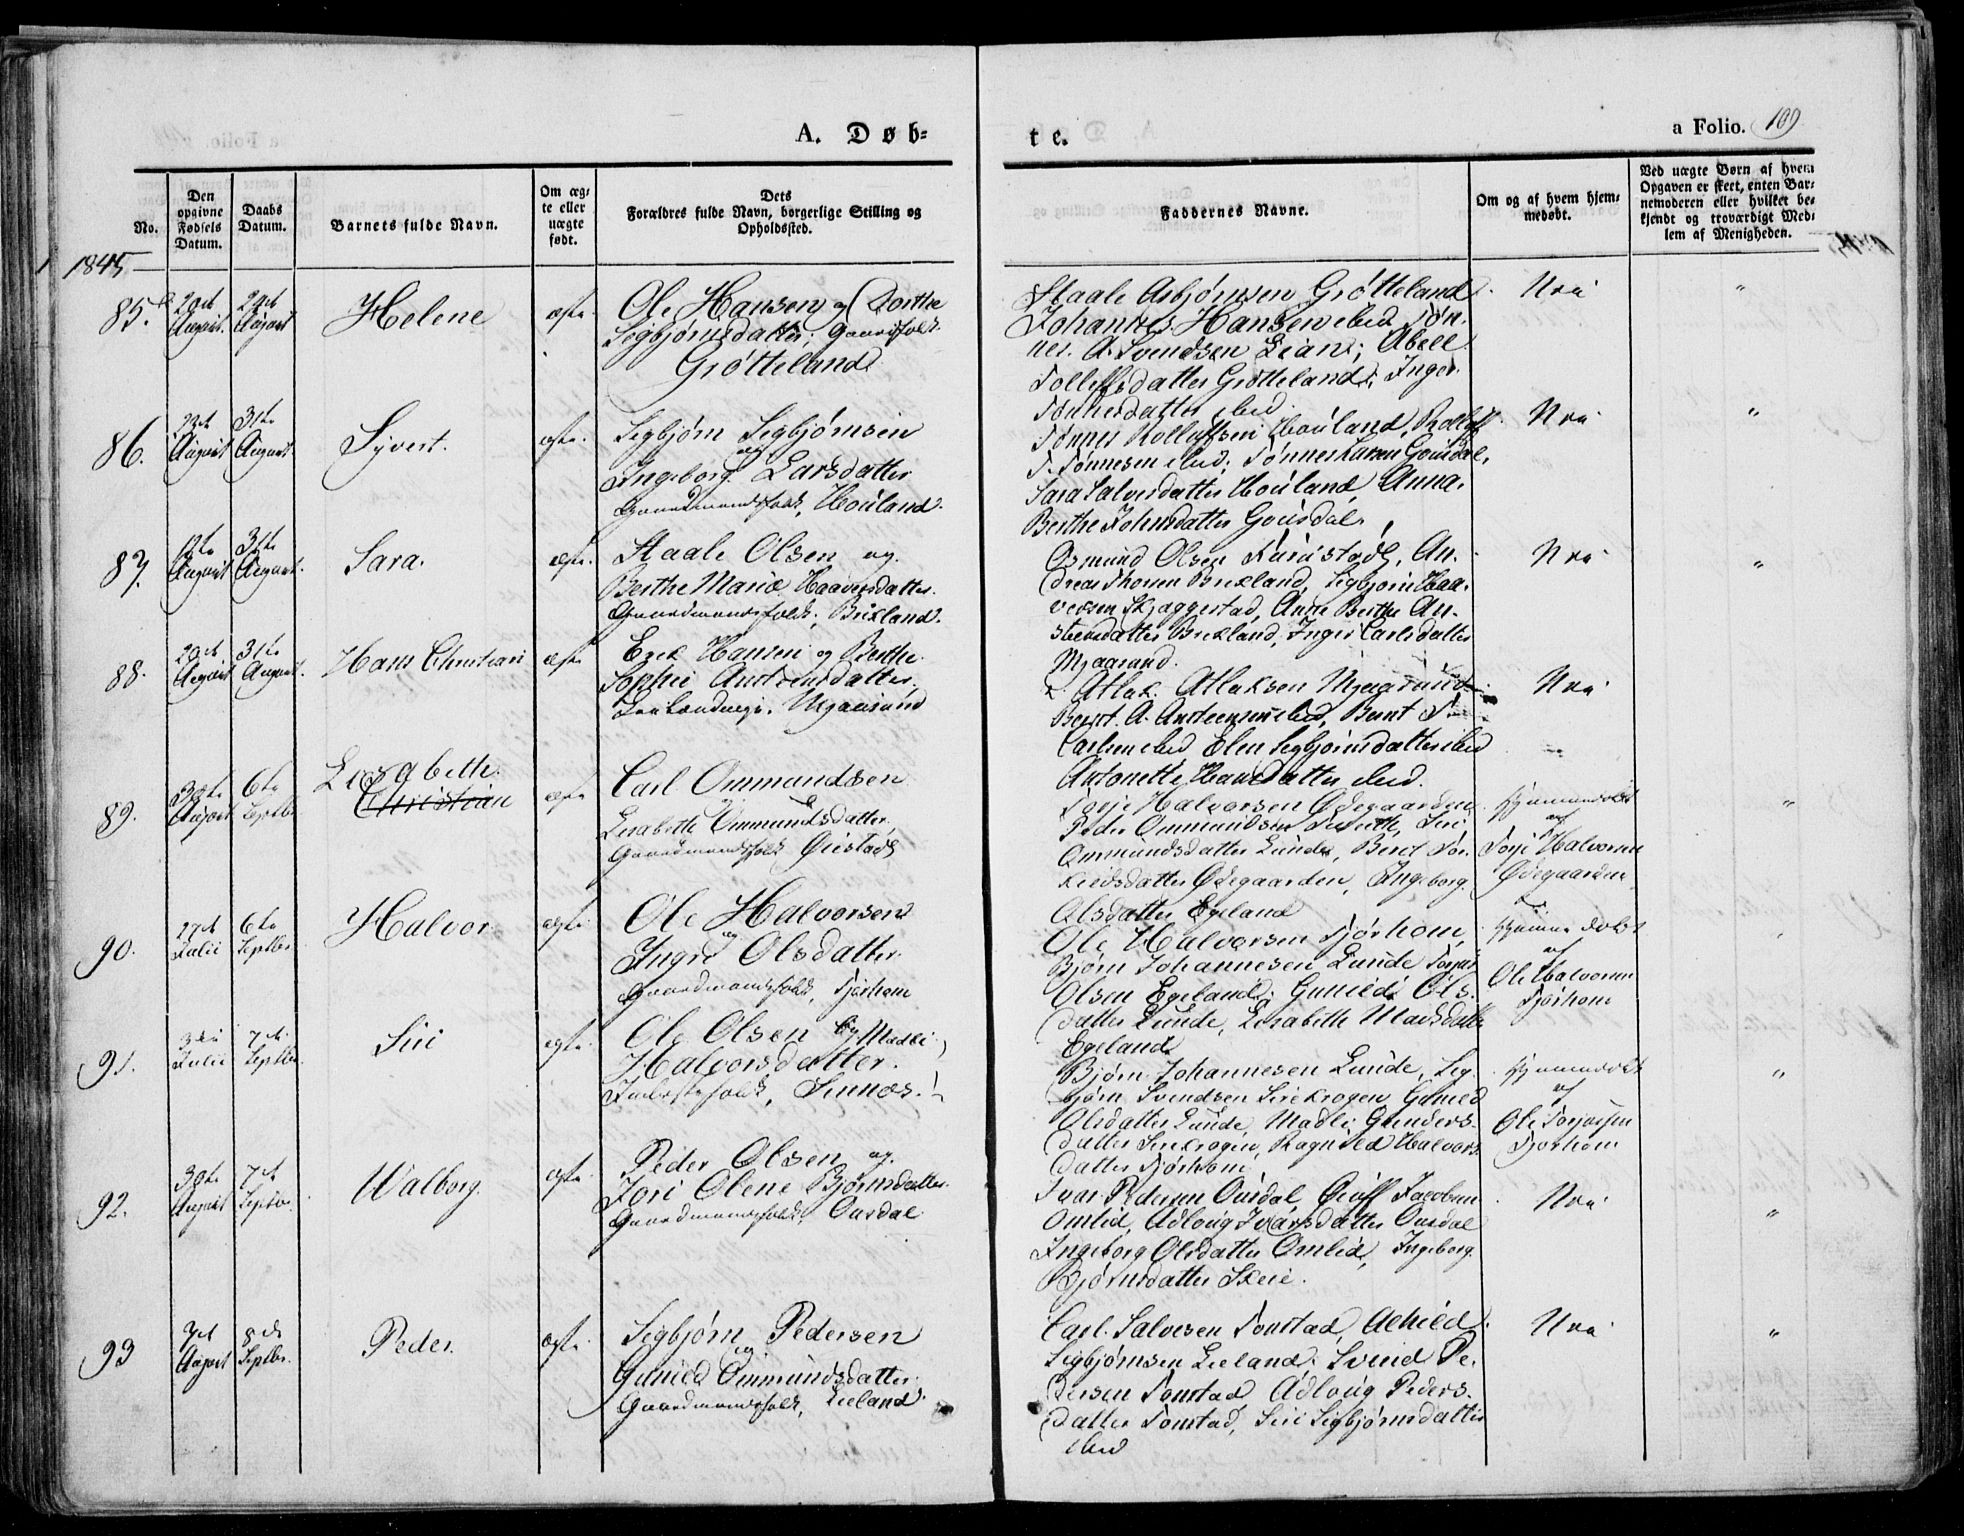 A. Døb-
te.
a Folio. 109
No.
Den opgivne Fødsels Datum.
Daabs Datum.
Barnets fulde Navn.
Om ægte eller uægte født.
Dets Forældres fulde Navn, borgerlige Stilling og Opholdssted.
Faddernes Navne.
Om og af hvem hjemmedøbt.
Ved uægte Børn af hvem Opgaven er skeet, enten Barnemoderen eller hvilket bekjendt og troværdigt Medlem af Menigheden.
1845
85.
August
August
Helene
ægte
Ole Hansen og Dorthe
Segbjørnsdatter, Gaardfolk
Grøtteland
Staale Asbjørnsen Grøtteland
Johannes Hansen ibid Tøn-
nes. A. Svendsen Lian; Abell
Tollefsdatter Grøtteland; Inger
Tønnesdatter ibid.
Nei
"
86.
23de August
31te August
Syvert.
ægte.
Segbjørn Segbjørnsen
og
Ingeborg Larsdatter
Gaardmandsfolk, Houland.
Tønnes Rolleffsen Houland, Rolleff
T. Tønnesen ibid; Tønnes Larsen Gousdal,
Sara Salvesdatter Houland, Anna
Berthe Johnsdatter Gousdal.
Nei
"
87.
12te August
31te August
Sara.
ægte.
Staale Olsen og
Berthe Maria Haaversdatter.
Gaardmandsfolk, Birkland.
Osmund Olsen An-
dreas Birkland, Segbjørn Haa-
versen Skjaggestad, Anne Berthe An-
steensdatter Birkland, Inger Carlsdatter
Mjaasund.
Nei
"
88.
29de August
31te August
Hans Christian
ægte
Erek Hansen og Berthe
Sophie Ansteensdatter,
Mjaasund
Atlak Atlaksen Mjaasund
Bernt A. Ansteensen ibid, Bernt T
Carlsen ibid Elen Segbjørnsdatter ibid
Antonette Hansdatter ibid.
Nei
89.
30te August
6te Septbr
Lisabeth.
Christian
ægte
Carl Ommundsen
og
Lisabeth Ommundsdatter,
Gaardmandsfolk Øiestad
Torje Halvorsen Ødegaarden
Peder Ommundsen Siri
Ommundsdatter Lunde, Berit Tor-
kildsdatter Ødegaarden, Ingeborg
Olsdatter Egeland
Hjemmedøbt
af
Torje Halvorsen
Ødegaarden
"
90.
27de Julii
6te Septbr
Halvor
ægte
Ole Halvorsen
og
Ingri Olsdatter
Gaardmandsfolk, Tjørhom
Ole Halvorsen Tjørhom,
Bjørn Johannesen Lunde, Torjus
Olsen Egeland; Gunild Ols-
datter Lunde, Lisabeth Madsdatter
Egeland.
Hjemmedøbt
af
Ole Halvorsen
Tjørhom
91.
Julii
7de Septbr
Siri
ægte
Ole Olsen og Madli
Halvorsdatter.
Inderstfolk, Sinnæs.
Bjørn Johannesen Lunde, Seg-
bjørn Svendsen Sirekrogen Gunild
Olsdatter Lunde, Madli Gunders-
datter Sirekrogen, Ragnild Halvors-
datter Tjørhom
Hjemmedøbt
af
Ole Torjusen
Tjørhom
"
92.
30te August
7de Septbr
Walborg.
ægte.
Peder Olsen og
Jori Olene Bjørnsdatter
Gaardmandsfolk Ousdal
Ivar Pedersen Ousdal, Jacobsen
Omlid, Adloug Ivarsdatter Ousdal
Ingeborg Olsdatter Omlid, Ingeborg
Bjørnsdatter Skeie.
Nei
"
93
7de August
8de Septbr.
Peder.
ægte.
Segbjørn Pedersen
og
Gunild Ommundsdatter
Gaardmandsfolk, Lieland
Carl Salvesen Tonstad, Achild
Segbjørnsen Lieland. Svend Pe-
dersen Tonstad Adloug Peders-
datter Tonstad, Siri Segbjørnsdatter
ibid
Nei
"